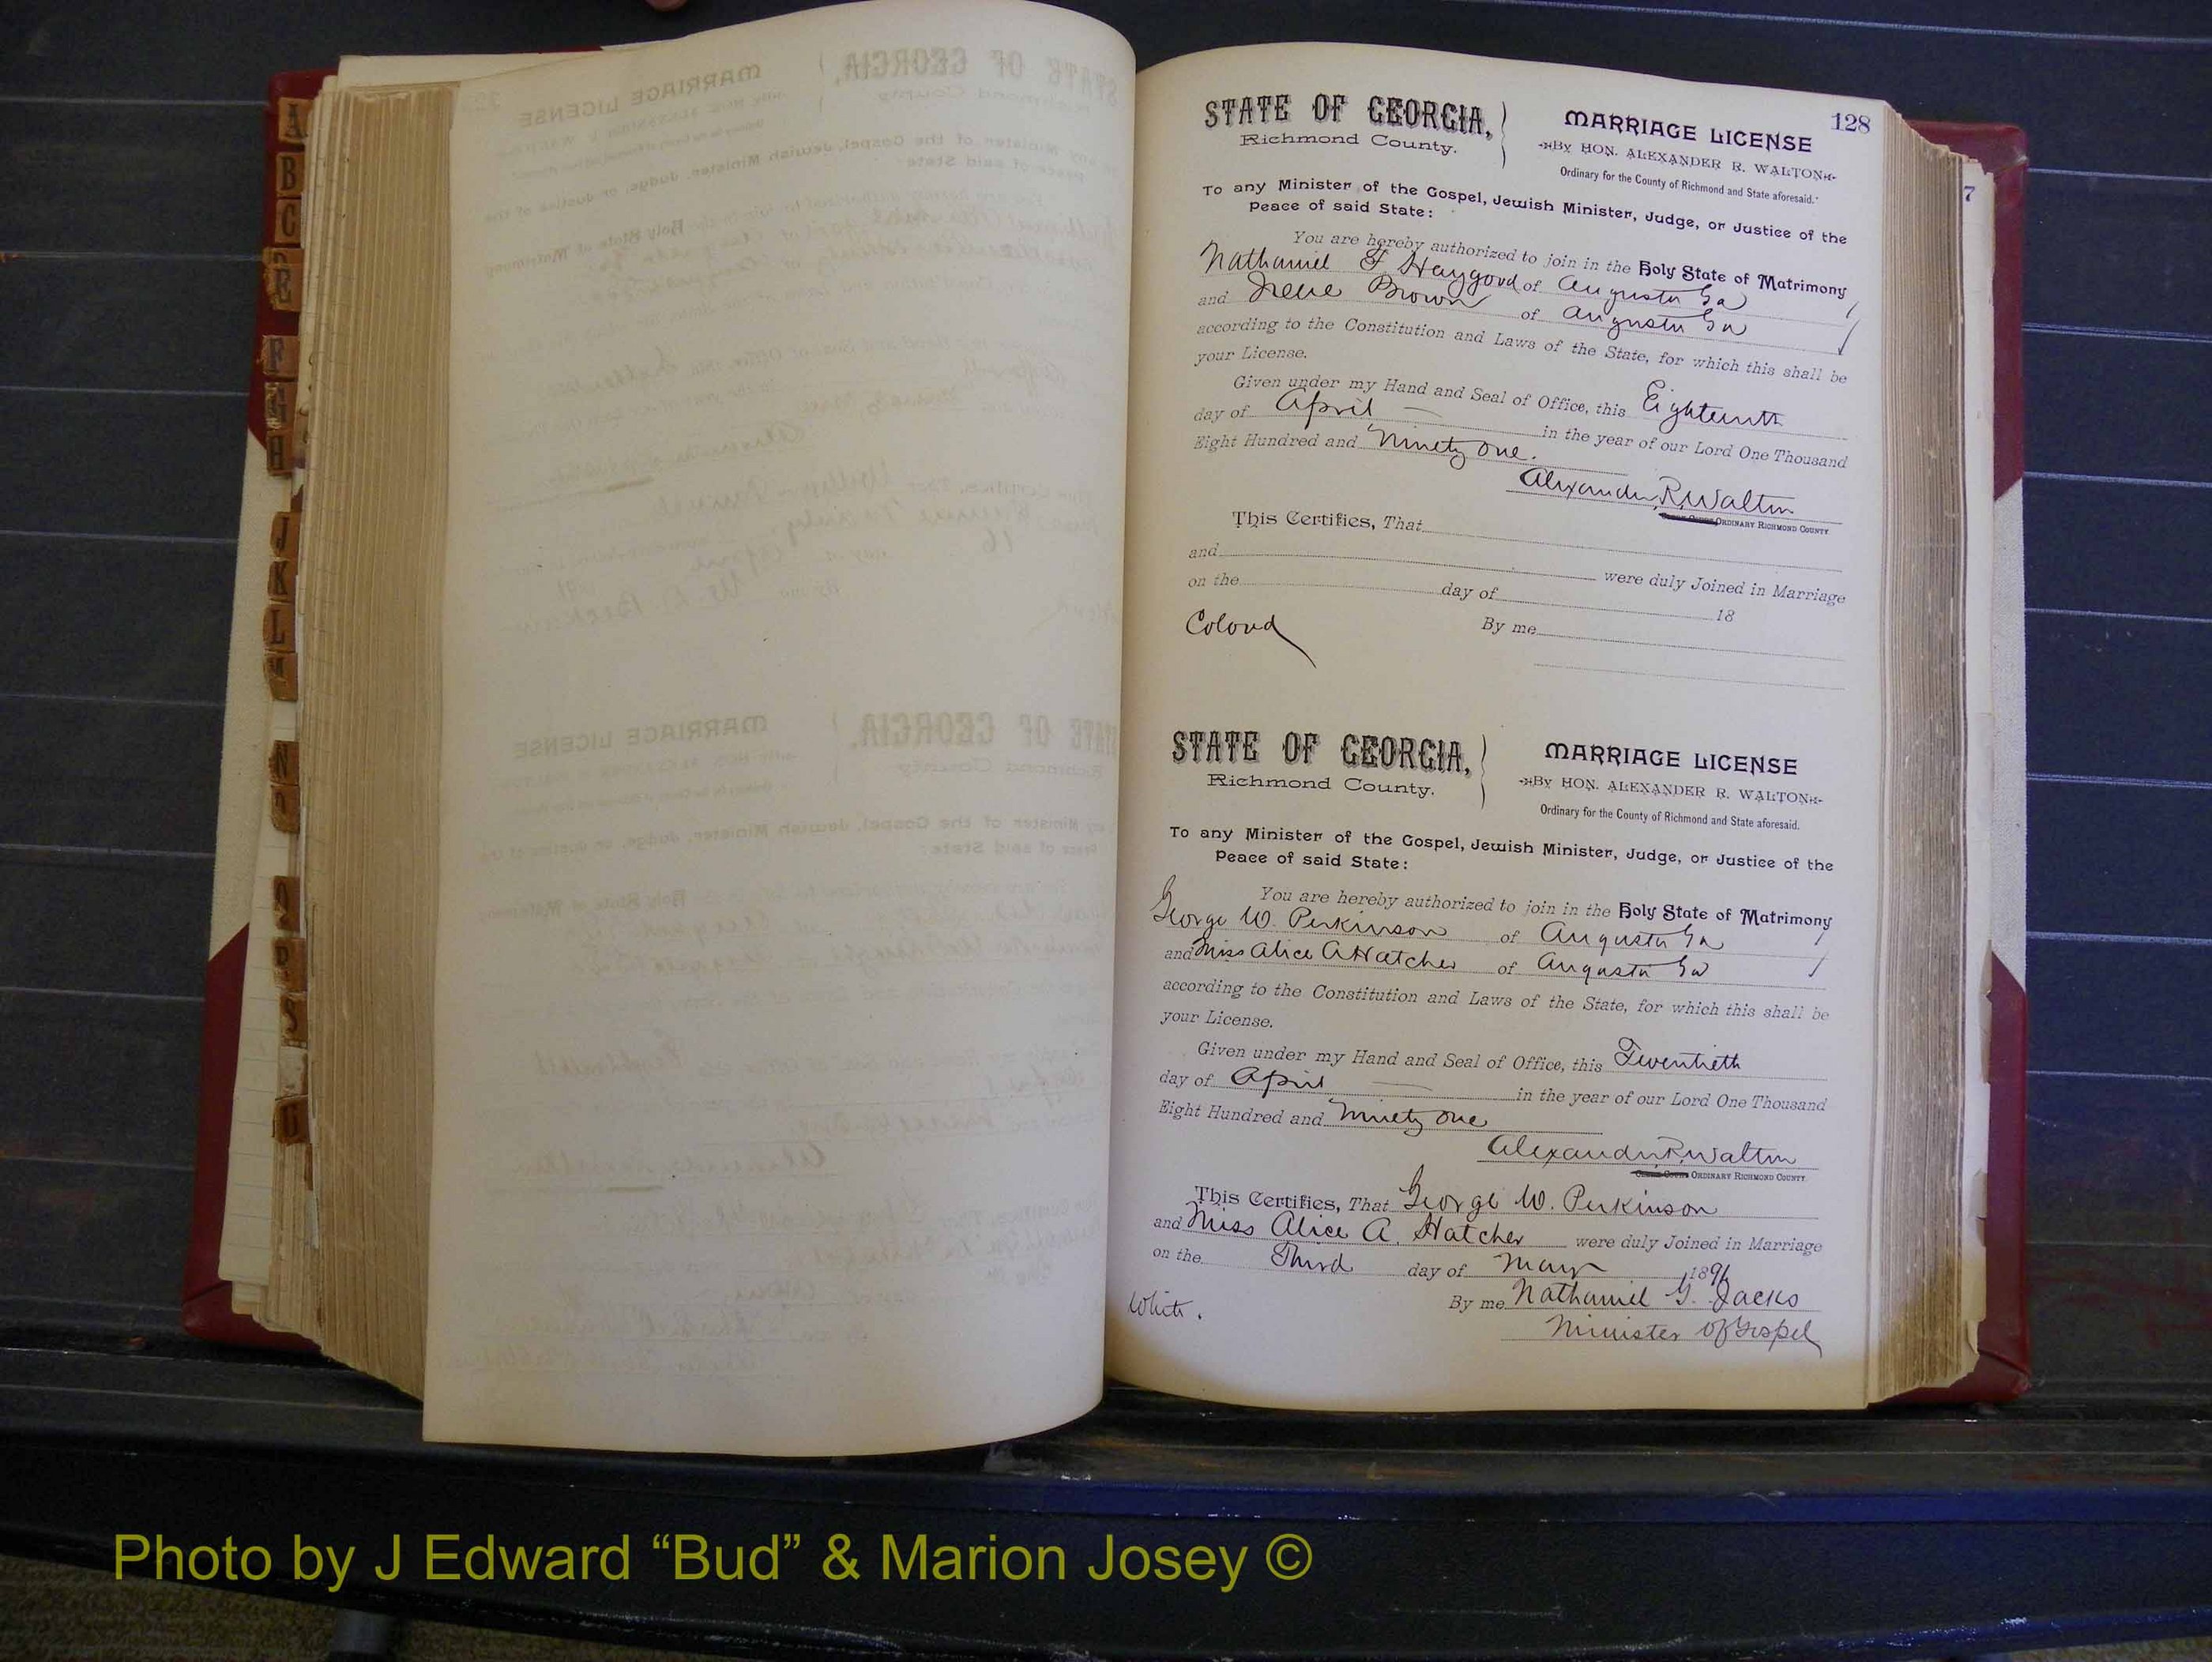 A
B
C
E
F
G
H
J
K
L
M
N
O
P
R
S
128
7
STATE OF GEORGIA,
Richmond County.
MARRIAGE LICENSE
By HON. ALEXANDER R. WALTON
Ordinary for the County of Richmond and State aforesaid.
To any Minister of the Gospel, Jewish Minister, Judge, or Justice of the
Peace of said State:
You are hereby authorized to join in the Holy State of Matrimony
Nathaniel F Haygood of Augusta Ga
and Irene Brown of Augusta Ga
according to the Constitution and Laws of the State, for which this shall be
your License.
Given under my Hand and Seal of Office, this Eighteenth
day of April in the year of our Lord One Thousand
Eight Hundred and Ninety One.
Alexander R Walton
ORDINARY RICHMOND COUNTY
This Certifies, That
and were duly Joined in Marriage
on the day of 18
Colord By me
STATE OF GEORGIA,
Richmond County.
MARRIAGE LICENSE
By HON. ALEXANDER R. WALTON
Ordinary for the County of Richmond and State aforesaid.
To any Minister of the Gospel, Jewish Minister, Judge, or Justice of the
Peace of said State:
You are hereby authorized to join in the Holy State of Matrimony
George W. Perkinson of Augusta Ga
and Miss Alice A Hatcher of Augusta Ga
according to the Constitution and Laws of the State, for which this shall be
your License.
Given under my Hand and Seal of Office, this Twentieth
day of April in the year of our Lord One Thousand
Eight Hundred and Ninety One
Alexander R. Walton
ORDINARY RICHMOND COUNTY
This Certifies, That George W. Perkinson
and Miss Alice A. Hatcher were duly Joined in Marriage
on the Third day of May 1891
White. By me Nathaniel G. Jacks
Minister of Gospel
Photo by J Edward “Bud” & Marion Josey ©